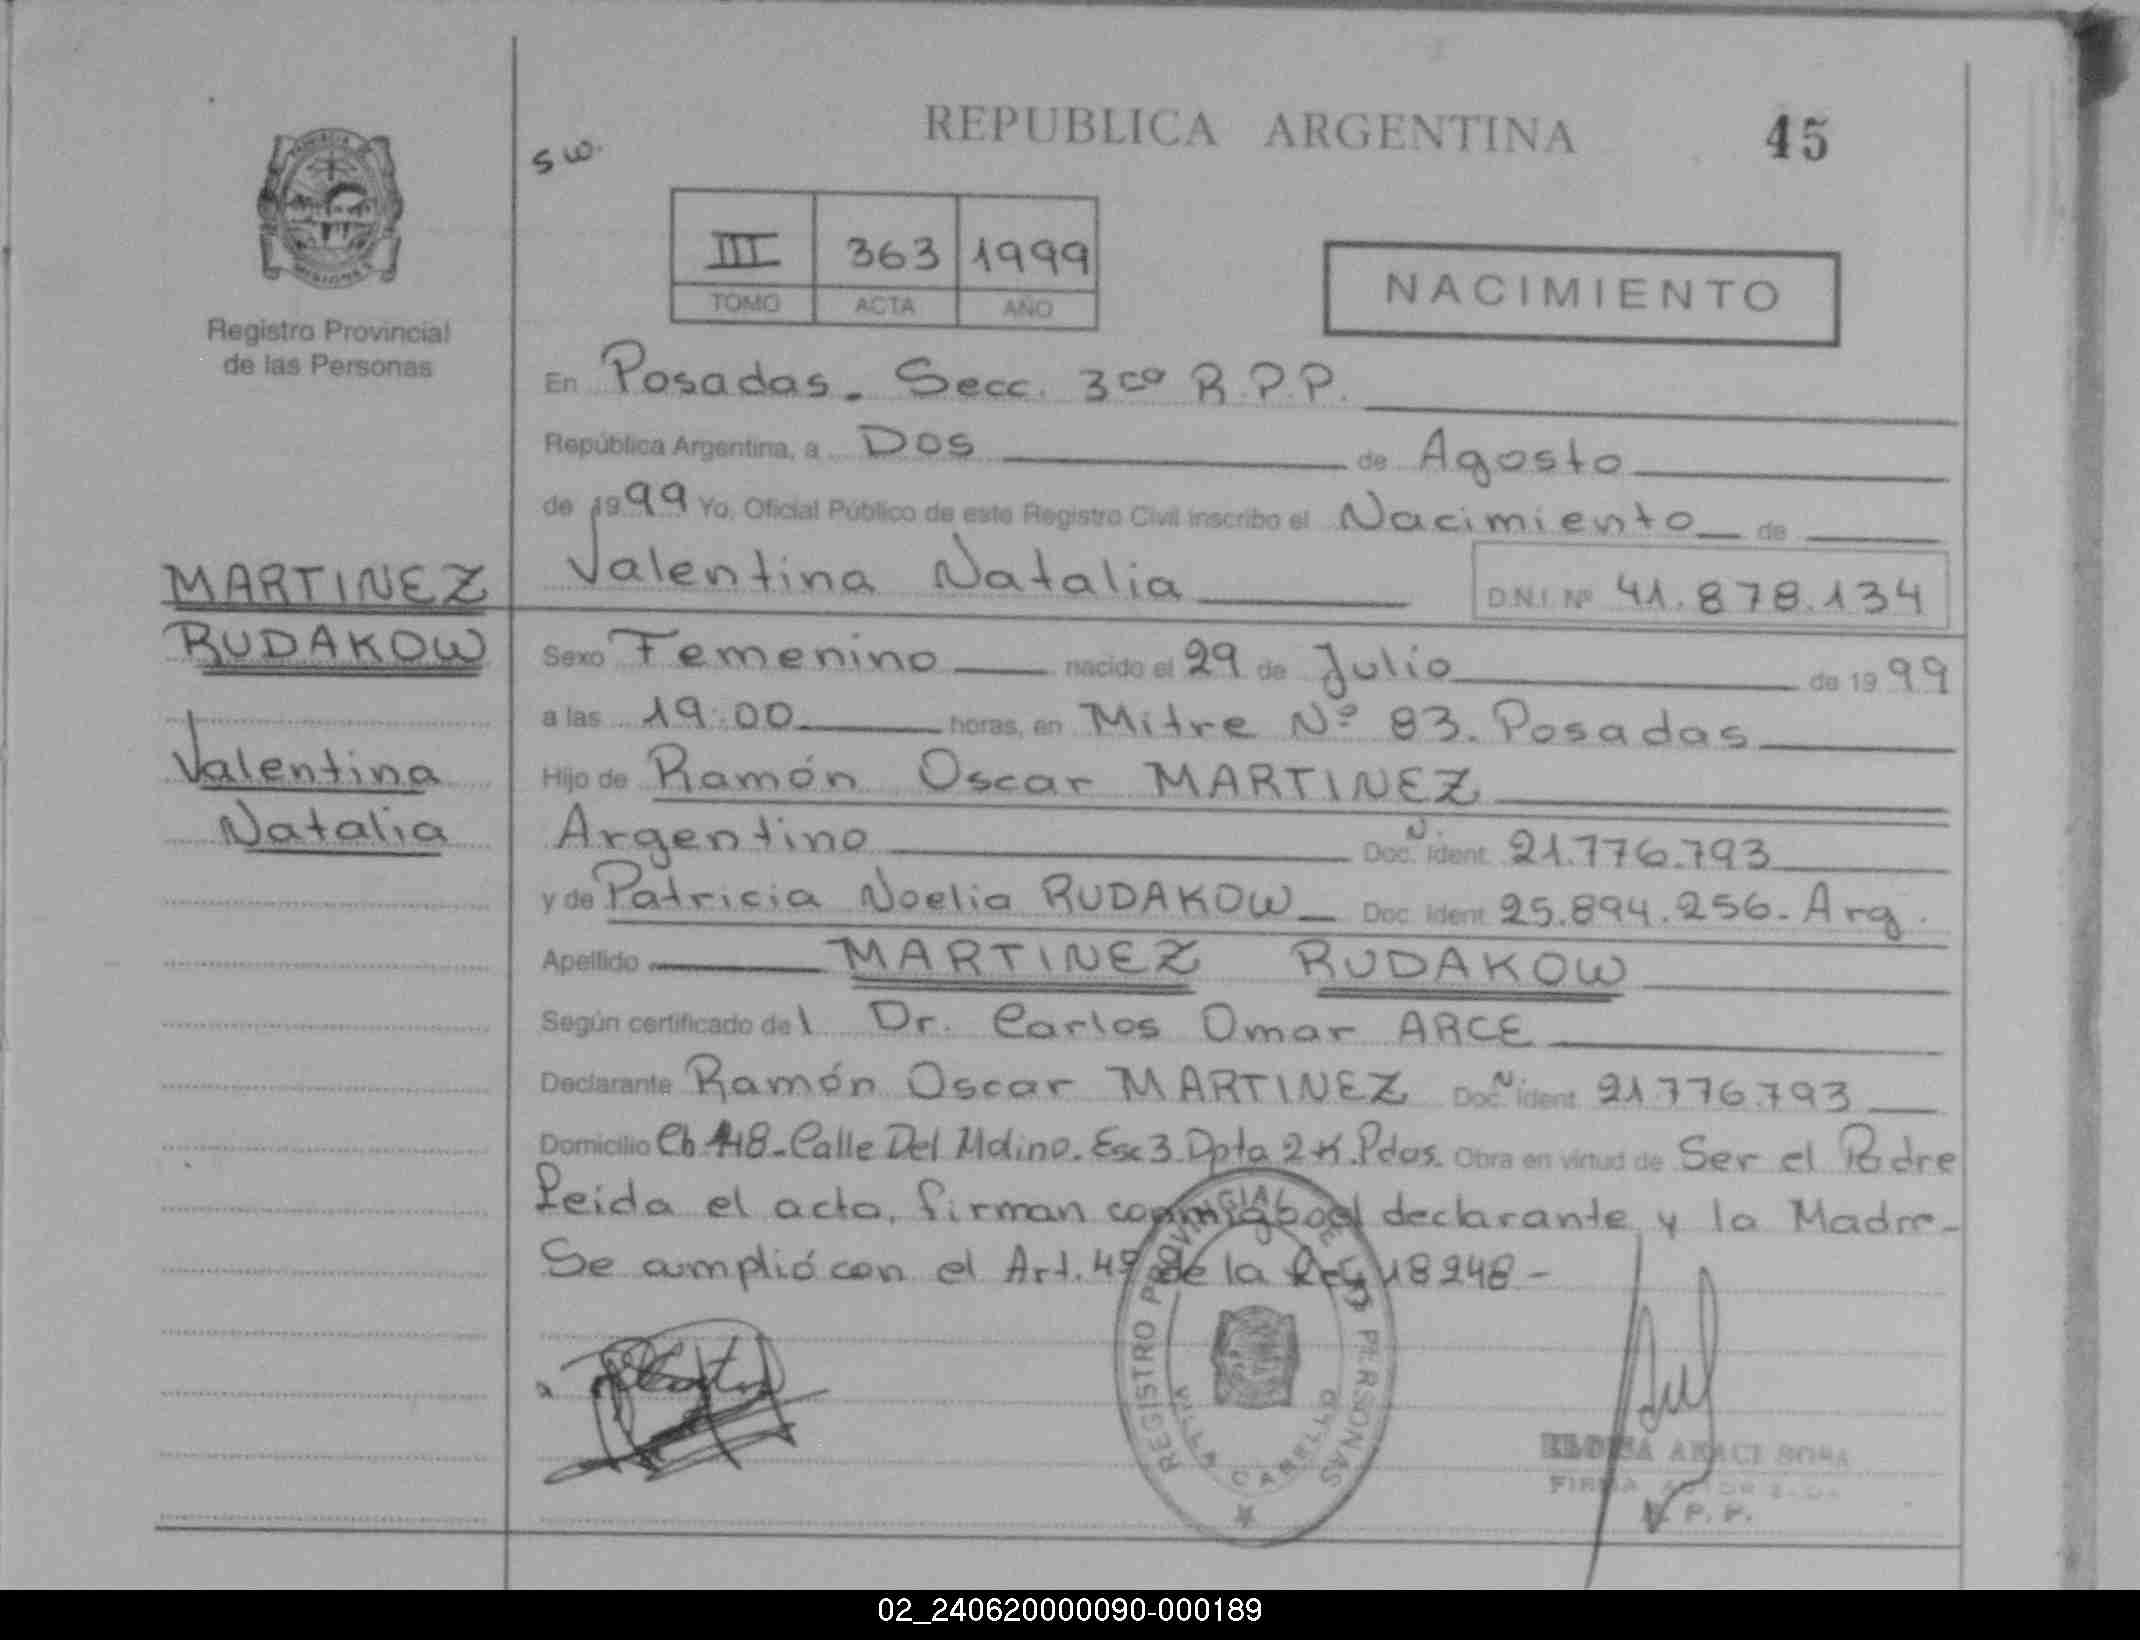 REPUBLICA ARGENTINA
45
s w.
III 363 1999
TOMO ACTA AÑO
NACIMIENTO
Registro Provincial
de las Personas
En Posadas. Secc. 3ra R.P.P.
República Argentina, a Dos de Agosto
de 1999 Yo, Oficial Público de este Registro Civil inscribo el Nacimiento de
Valentina Natalia D.N.I. Nº 41.878.134
MARTINEZ
RUDAKOW
Valentina
Natalia
Sexo Femenino nacido el 29 de Julio de 1999
a las 19:00 horas, en Mitre Nº 83. Posadas
Hijo de Ramón Oscar MARTINEZ
Argentino Doc. Ident. 21.776.793
y de Patricia Noelia RUDAKOW Doc. Ident. 25.894.256. Arg.
Apellido MARTINEZ RUDAKOW
Según certificado del Dr. Carlos Omar ARCE
Declarante Ramón Oscar MARTINEZ Doc. Ident. 21.776.793
Domicilio Ch 148 - Calle Del Molino. Esc 3 Dpta 2 K. Pdas. Obra en virtud de Ser el Padre
Leida el acta, firman conmigo el declarante y la Madre -
Se cumplió con el Art. 4º de la Ley 18248 -
REGISTRO PROVINCIAL DE LAS PERSONAS
VILLA CABELLO
ARACI SOSA
FIRMA
R. P. P.
02_240620000090-000189